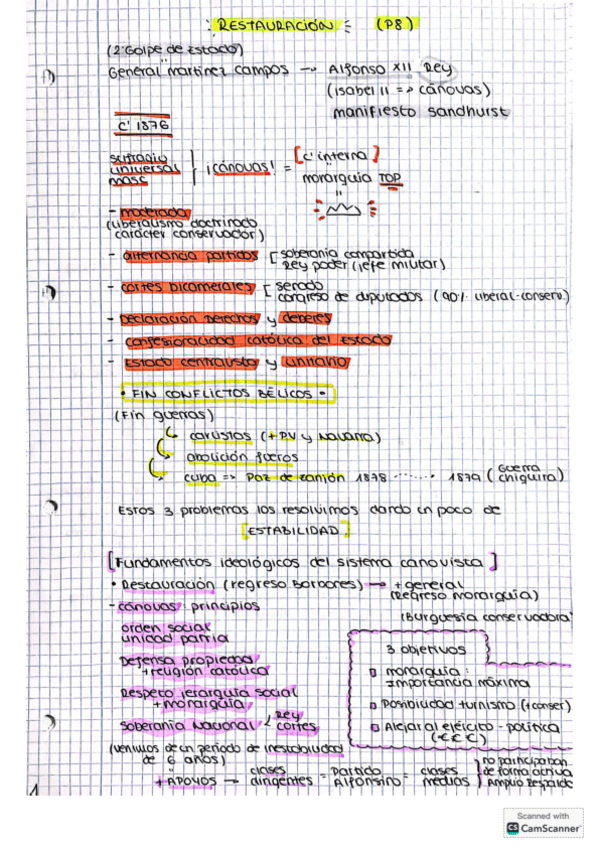 RESTAURACIÓN (P8)
(2º Golpe de Estado)
General martínez campos → Alfonso XII Rey
(isabel II => cánovas)
manifiesto sandhurst
C' 1876
sufragio
universal
masc
¡cánovas! = [c' interna]
monarquía TOP
- moderada
(liberalismo doctrinado
carácter conservador)
- alternancia partidos [soberanía compartida
Rey poder (jefe militar)
- cortes bicamerales [senado
congreso de diputados (90% liberal-conserv)
- Declaración Derechos y deberes
- confesionalidad católica del estado
- Estado centralista y unitario
• FIN CONFLICTOS BÉLICOS •
(Fin guerras)
carlistas (+PV y Navarra)
abolición fueros
cuba => Paz de zanjón 1878 ........ 1879 (Guerra chiquita)
Estos 3 problemas los resolvimos dando un poco de
[ESTABILIDAD]
[Fundamentos ideológicos del sistema canovista]
• Restauración (regreso Borbones) → + general
(Regreso monarquía)
(Burguesía conservadora)
- cánovas: principios
orden social
unidad patria
Defensa propiedad
+ religión católica
Respeto jerarquía social
+ monarquía
soberanía nacional < Rey
cortes
3 objetivos
monarquía:
importancia máxima
Posibilidad turnismo (+conser)
Alejar al ejército - política
(€€€)
(venimos de un período de inestabilidad
de 6 años)
+ APOYOS → clases dirigentes = Partido Alfonsino = clases medias } no participaban
de forma activa
Amplio Respaldo
1
Scanned with
CS CamScanner